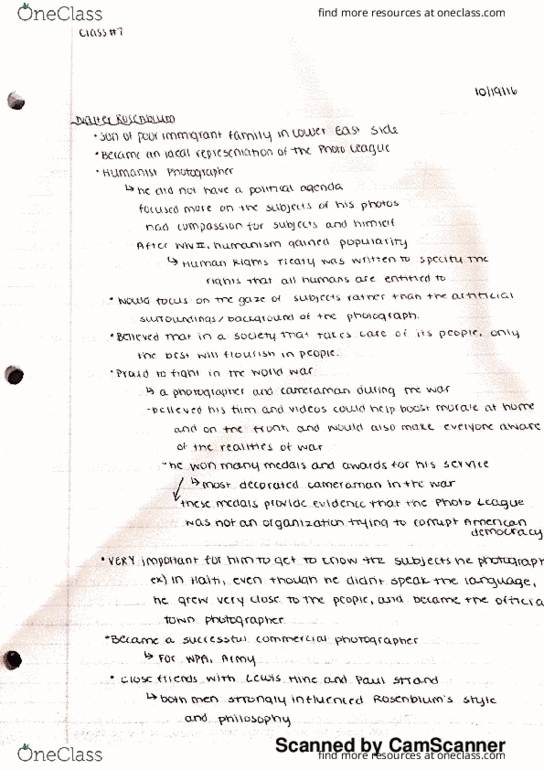 OneClass
find more resources at oneclass.com
Class #7
10/19/16
Walter Rosenblum
• Son of poor immigrant family in Lower East Side
• Became an ideal representation of the Photo League
• Humanist Photographer
↳ he did not have a political agenda
focused more on the subjects of his photos
had compassion for subjects and himself
After WWII, humanism gained popularity
↳ Human Rights Treaty was written to specify the
rights that all humans are entitled to
• Would focus on the gaze of subjects rather than the artificial
surroundings/background of the photograph.
• Believed that in a society that takes care of its people, only
the best will flourish in people.
• Proud to fight in the world war
↳ a photographer and cameraman during the war
-believed his film and videos could help boost morale at home
and on the front, and would also make everyone aware
of the realities of war
-he won many medals and awards for his service
↳ most decorated cameraman in the war
these medals provide evidence that the Photo League
was not an organization trying to corrupt American
democracy
• VERY important for him to get to know the subjects he photograph
ex) in Haiti, even though he didn't speak the language,
he grew very close to the people, and became the officia
town photographer
• Became a successful commercial photographer
↳ for WPA, Army
• Close friends with Lewis Hine and Paul Strand
↳ both men strongly influenced Rosenblum's style
and philosophy
Scanned by CamScanner
OneClass
find more resources at oneclass.com